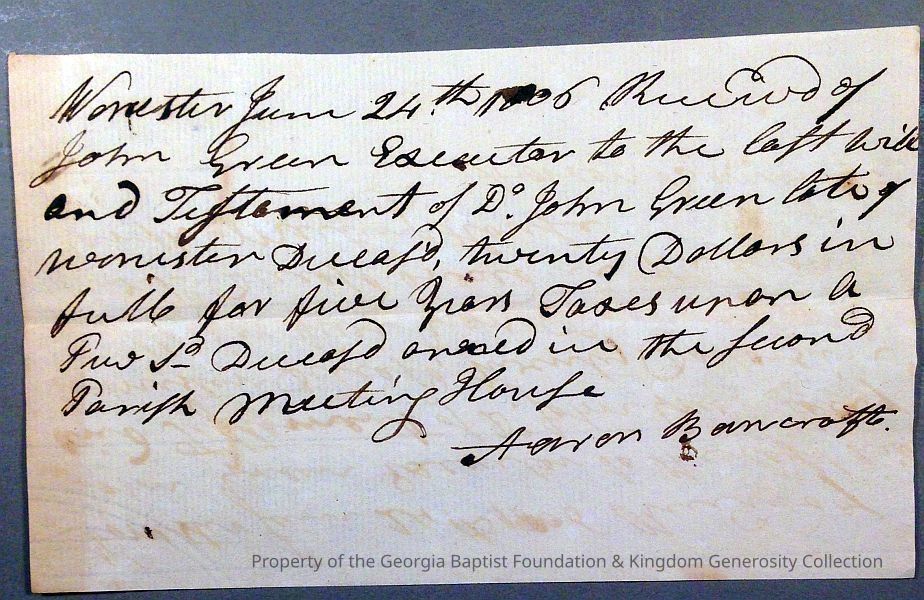 Worcester June 24th 1806 Received of
John Green Executor to the last Will
and Testament of Dr. John Green late of
worcester Deceasd, twenty Dollars in
full for five Years Taxes upon a
Pew Sd Deceasd owned in the second
Parish Meeting House
Aaron Bancroft.
Property of the Georgia Baptist Foundation & Kingdom Generosity Collection